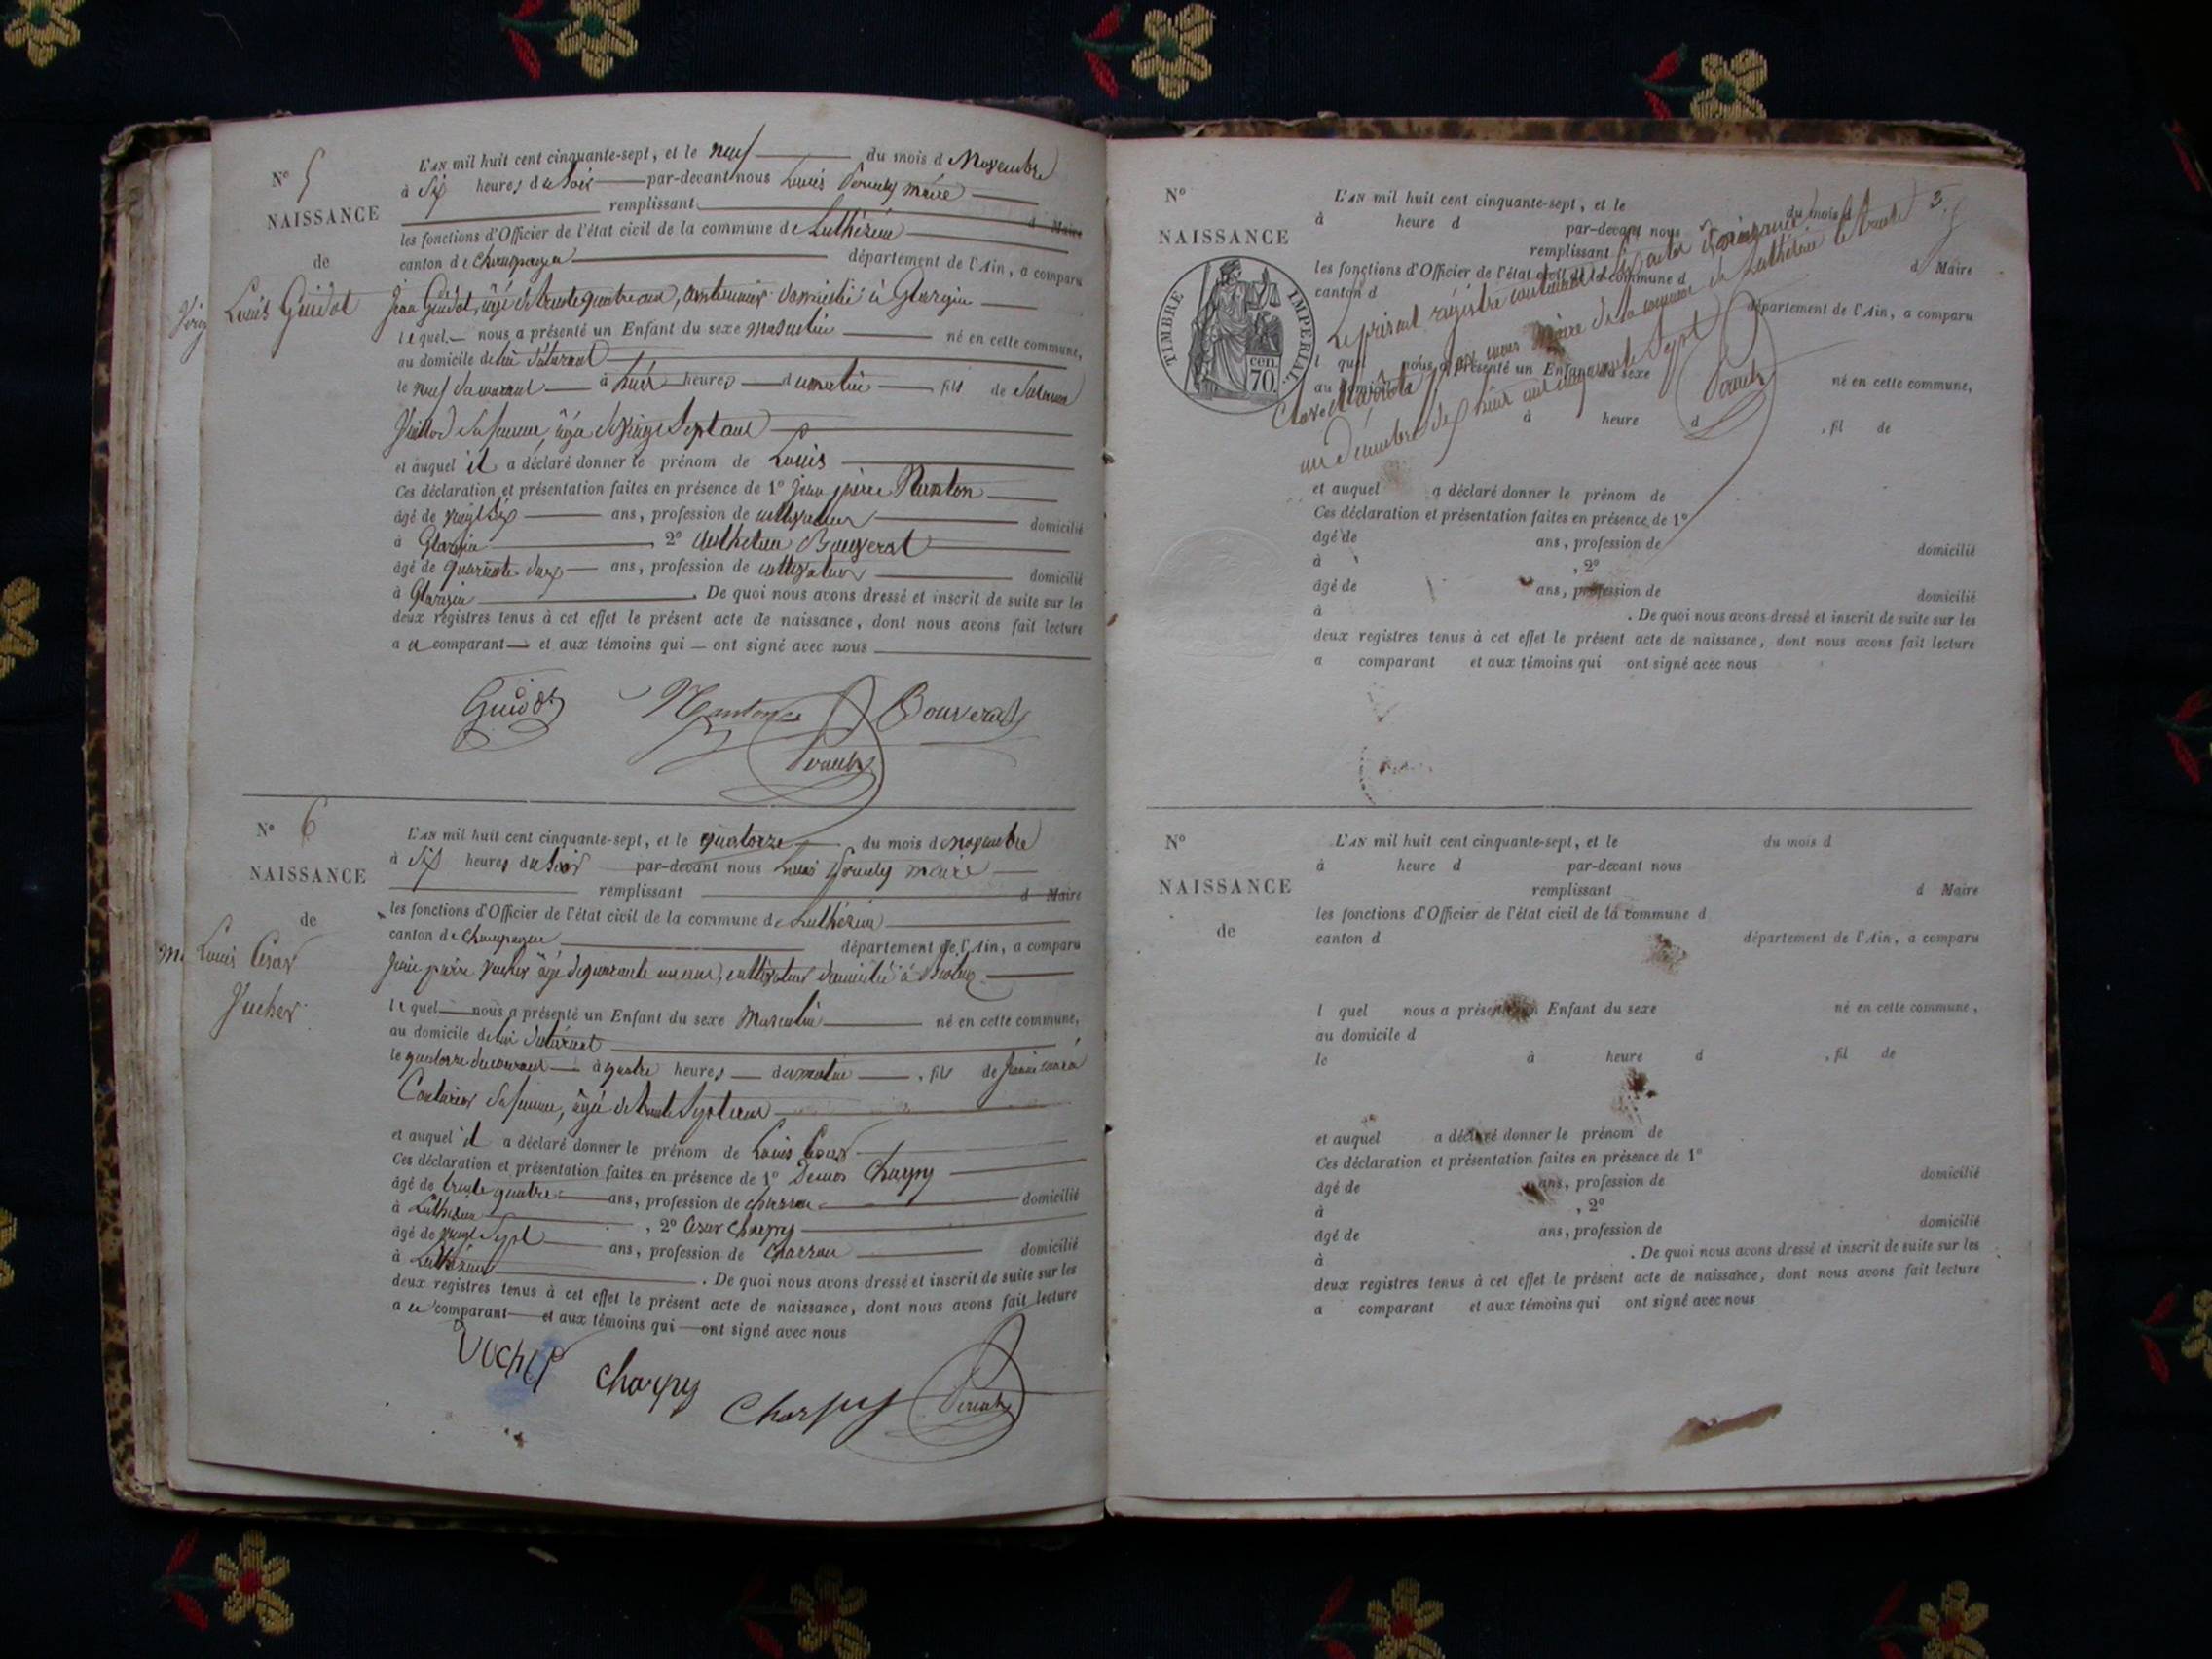 N° 5
NAISSANCE
de
Louis Guidot
L'AN mil huit cent cinquante-sept, et le neuf du mois de Novembre
à Six heures du Soir par-devant nous Louis maire
remplissant d Maire
les fonctions d'Officier de l'état civil de la commune de Luthézieu
canton de Champagne département de l'Ain, a comparu
Jean Guidot, âgé de trente quatre ans, domicilié à Glargin
lequel nous a présenté un Enfant du sexe masculin né en cette commune,
au domicile de lui déclarant
le neuf du courant à huit heures du matin fils de
sa femme, âgée de vingt Sept ans
et auquel il a déclaré donner le prénom de Louis
Ces déclaration et présentation faites en présence de 1° Jean pierre Nanton
âgé de ans, profession de cultivateur domicilié
à Glargin , 2° Anthelme Bouverat
âgé de quarante ans, profession de cultivateur domicilié
à Glargin . De quoi nous avons dressé et inscrit de suite sur les
deux registres tenus à cet effet le présent acte de naissance, dont nous avons fait lecture
au comparant et aux témoins qui ont signé avec nous
Guidot Nanton Bouverat
N° 6
NAISSANCE
de
Louis César
Vucher
L'AN mil huit cent cinquante-sept, et le quatorze du mois de novembre
à Six heures du Soir par-devant nous Louis maire
remplissant d Maire
les fonctions d'Officier de l'état civil de la commune de Luthézieu
canton de Champagne département de l'Ain, a comparu
pierre Vucher âgé de quarante un ans, cultivateur domicilié à
lequel nous a présenté un Enfant du sexe Masculin né en cette commune,
au domicile de lui déclarant
le quatorze du courant à quatre heures du matin , fils de
sa femme, âgée de trente Sept ans
et auquel il a déclaré donner le prénom de Louis César
Ces déclaration et présentation faites en présence de 1° Charpy
âgé de trente quatre ans, profession de charron domicilié
à Luthézieu , 2° César Charpy
âgé de vingt Sept ans, profession de charron domicilié
à Luthézieu . De quoi nous avons dressé et inscrit de suite sur les
deux registres tenus à cet effet le présent acte de naissance, dont nous avons fait lecture
au comparant et aux témoins qui ont signé avec nous
Vucher Charpy Charpy
3.
N°
NAISSANCE
TIMBRE IMPERIAL.
cen.
70.
L'AN mil huit cent cinquante-sept, et le du mois d
à heure d par-devant nous
remplissant d Maire
les fonctions d'Officier de l'état civil de la commune d
canton d département de l'Ain, a comparu
l quel nous a présenté un Enfant du sexe né en cette commune,
au domicile d
à heure d , fil de
Le présent régistre contenant Six actes de naissance
Clos et arrêté par nous Maire de la commune de Luthézieu le trente
un décembre dix huit cent cinquante Sept
et auquel a déclaré donner le prénom de
Ces déclaration et présentation faites en présence de 1°
âgé de ans, profession de domicilié
à , 2°
âgé de ans, profession de domicilié
à . De quoi nous avons dressé et inscrit de suite sur les
deux registres tenus à cet effet le présent acte de naissance, dont nous avons fait lecture
a comparant et aux témoins qui ont signé avec nous
N°
NAISSANCE
de
L'AN mil huit cent cinquante-sept, et le du mois d
à heure d par-devant nous
remplissant d Maire
les fonctions d'Officier de l'état civil de la commune d
canton d département de l'Ain, a comparu
l quel nous a présenté un Enfant du sexe né en cette commune,
au domicile d
le à heure d , fil de
et auquel a déclaré donner le prénom de
Ces déclaration et présentation faites en présence de 1°
âgé de ans, profession de domicilié
à , 2°
âgé de ans, profession de domicilié
à . De quoi nous avons dressé et inscrit de suite sur les
deux registres tenus à cet effet le présent acte de naissance, dont nous avons fait lecture
a comparant et aux témoins qui ont signé avec nous